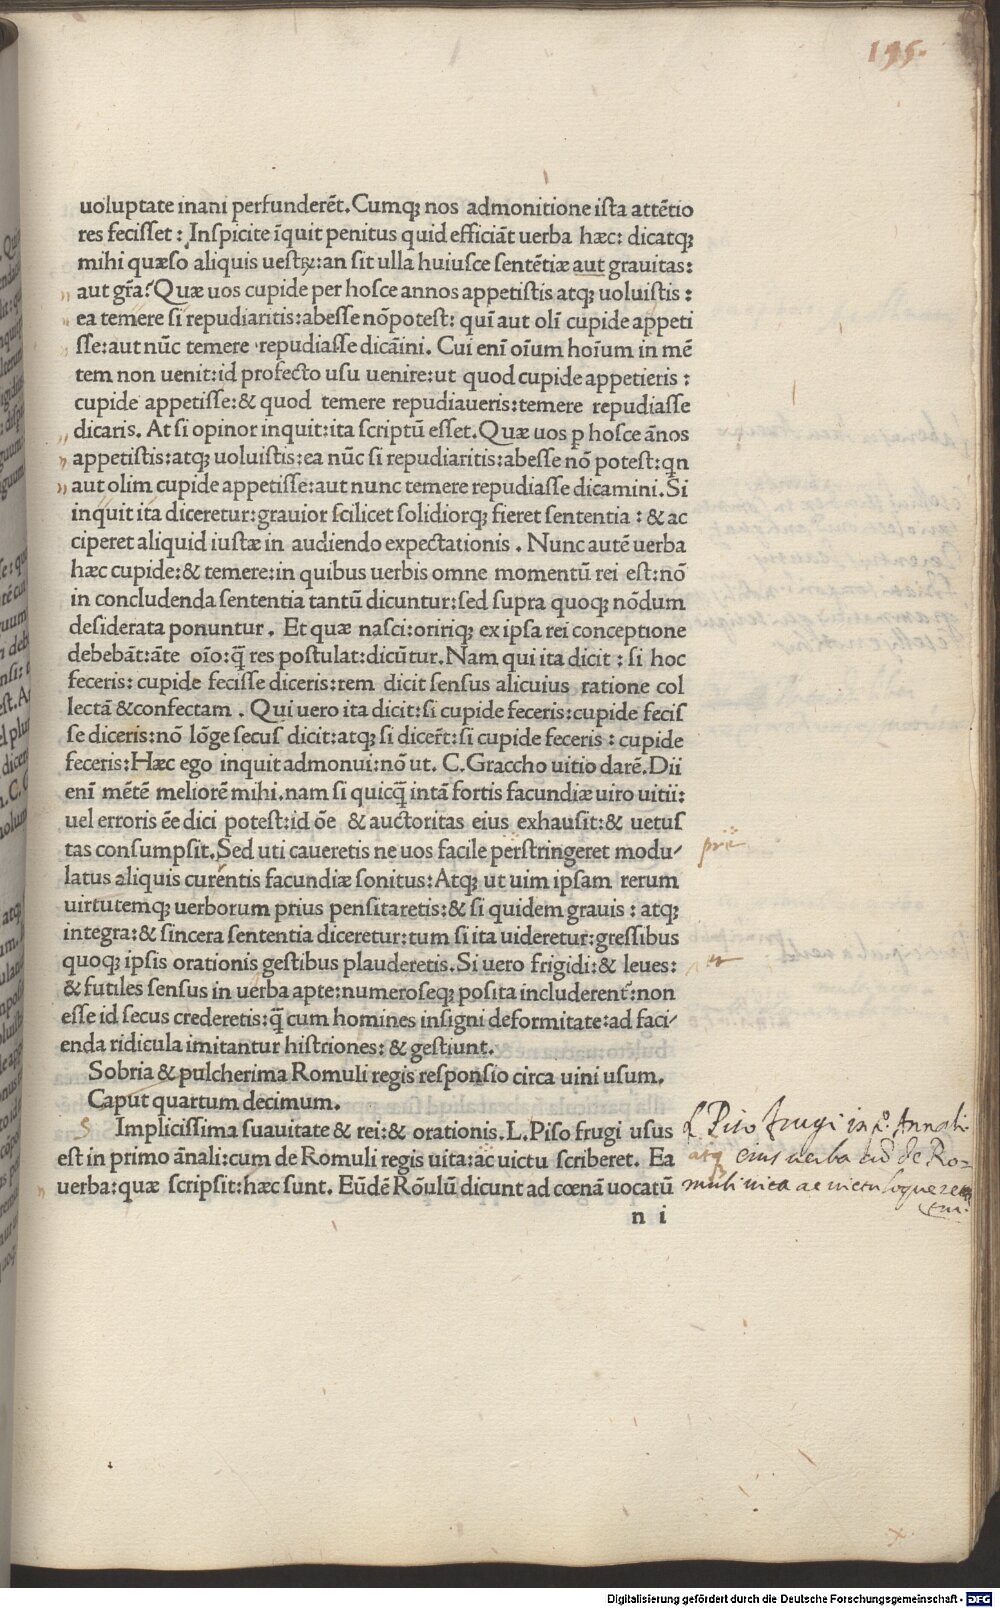 195.
uoluptate inani perfunderẽt. Cumq; nos admonitione ista attẽtio
res fecisset : Inspicite ĩquit penitus quid efficiãt uerba hæc: dicatq;
mihi quæso aliquis uestrꝝ: an sit ulla huiusce sentẽtiæ aut grauitas:
aut gr̃a? Quæ uos cupide per hosce annos appetistis atq; uoluistis :
ea temere si repudiaritis: abesse nõ potest: quĩ aut olĩ cupide appeti
sse: aut nũc temere repudiasse dicãini. Cui enĩ oĩum hoĩum in mẽ
tem non uenit: id profecto usu uenire: ut quod cupide appetieris :
cupide appetisse: & quod temere repudiaueris: temere repudiasse
dicaris. At si opinor inquit: ita scriptũ esset. Quæ uos p hosce ãnos
appetistis: atq; uoluistis: ea nũc si repudiaritis: abesse nõ potest: qn
aut olim cupide appetisse: aut nunc temere repudiasse dicamini. Si
inquit ita diceretur: grauior scilicet solidiorq; fieret sententia : & ac
ciperet aliquid iustæ in audiendo expectationis . Nunc autẽ uerba
hæc cupide: & temere: in quibus uerbis omne momentũ rei est: nõ
in concludenda sententia tantũ dicuntur: sed supra quoq; nõdum
desiderata ponuntur . Et quæ nasci: oririq; ex ipsa rei conceptione
debebãt: ãte oĩo: q̃ res postulat: dicũtur. Nam qui ita dicit : si hoc
feceris: cupide fecisse diceris: rem dicit sensus alicuius ratione col
lectã & confectam . Qui uero ita dicit: si cupide feceris: cupide fecis
se diceris: nõ lõge secus dicit: atq; si dicer̃t: si cupide feceris : cupide
feceris: Hæc ego inquit admonui: nõ ut. C. Graccho uitio darẽ. Dii
enĩ mẽtẽ meliorẽ mihi. nam si quicq̃ intã fortis facundiæ uiro uitii:
uel erroris ẽe dici potest: id õe & auctoritas eius exhausit: & uetus
tas consumpsit. Sed uti caueretis ne uos facile perstringeret modu-
latus aliquis curentis facundiæ sonitus: Atq; ut uim ipsam rerum
uirtutemq; uerborum prius pensitaretis: & si quidem grauis : atq;
integra: & sincera sententia diceretur: tum si ita uideretur: gressibus
quoq; ipsis orationis gestibus plauderetis. Si uero frigidi: & leues:
& futiles sensus in uerba apte: numeroseq; posita includerent̃: non
esse id secus crederetis: q̃ cum homines insigni deformitate: ad faci-
enda ridicula imitantur histriones: & gestiunt.
Sobria & pulcherima Romuli regis responsio circa uini usum.
Caput quartum decimum.
S Implicissima suauitate & rei: & orationis. L. Piso frugi usus
est in primo ãnali: cum de Romuli regis uita: ac uictu scriberet. Ea
uerba: quæ scripsit: hæc sunt. Eũdẽ Rõulũ dicunt ad cœnã uocatũ
n i
L Piso frugi in pº. Annali
atq eius uerba cũ de Ro=
muli uita ac uictu loqueretur
Digitalisierung gefördert durch die Deutsche Forschungsgemeinschaft - DFG